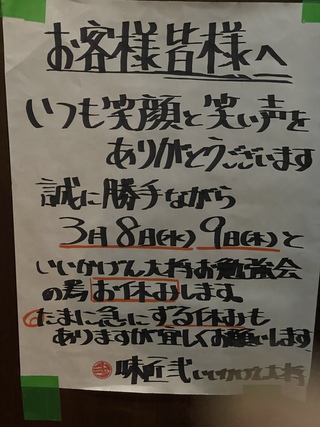 お客様皆様へ
いつも笑顔と笑い声を
ありがとうございます
誠に勝手ながら
3月8日(水)9日(木)と
いいかげん大将お勉強会
の為お休みします。
たまに急にずる休みも
ありますが宜しくお願いします
味匠弐いいかげん大将